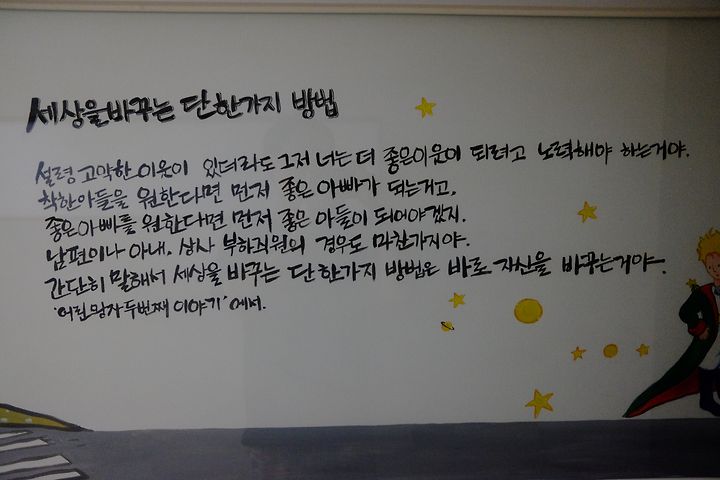 세상을 바꾸는 단 한가지 방법
설령 고약한 이웃이 있더라도 그저 너는 더 좋은이웃이 되려고 노력해야 하는거야.
착한아들을 원한다면 먼저 좋은 아빠가 되는거고,
좋은아빠를 원한다면 먼저 좋은 아들이 되어야겠지.
남편이나 아내, 상사 부하직원의 경우도 마찬가지야.
간단히 말해서 세상을 바꾸는 단 한가지 방법은 바로 자신을 바꾸는거야.
'어린왕자 두번째 이야기'에서.